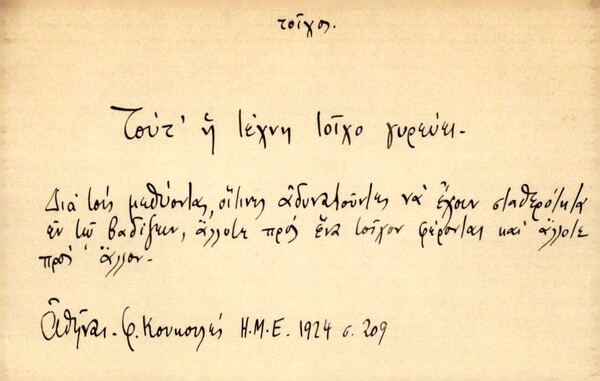 τοῖχος.
Τούτ' ἡ τέχνη τοῖχο γυρεύει.
Διὰ τοὺς μεθύοντας, οἵτινες ἀδυνατοῦντες νὰ ἔχουν σταθερότητα
ἐν τῷ βαδίζειν, ἄλλοτε πρὸς ἕνα τοῖχον φέρονται καὶ ἄλλοτε
πρὸς ἄλλον.
Ἀθῆναι. Φ. Κουκουλές Η.Μ.Ε. 1924 σ. 209